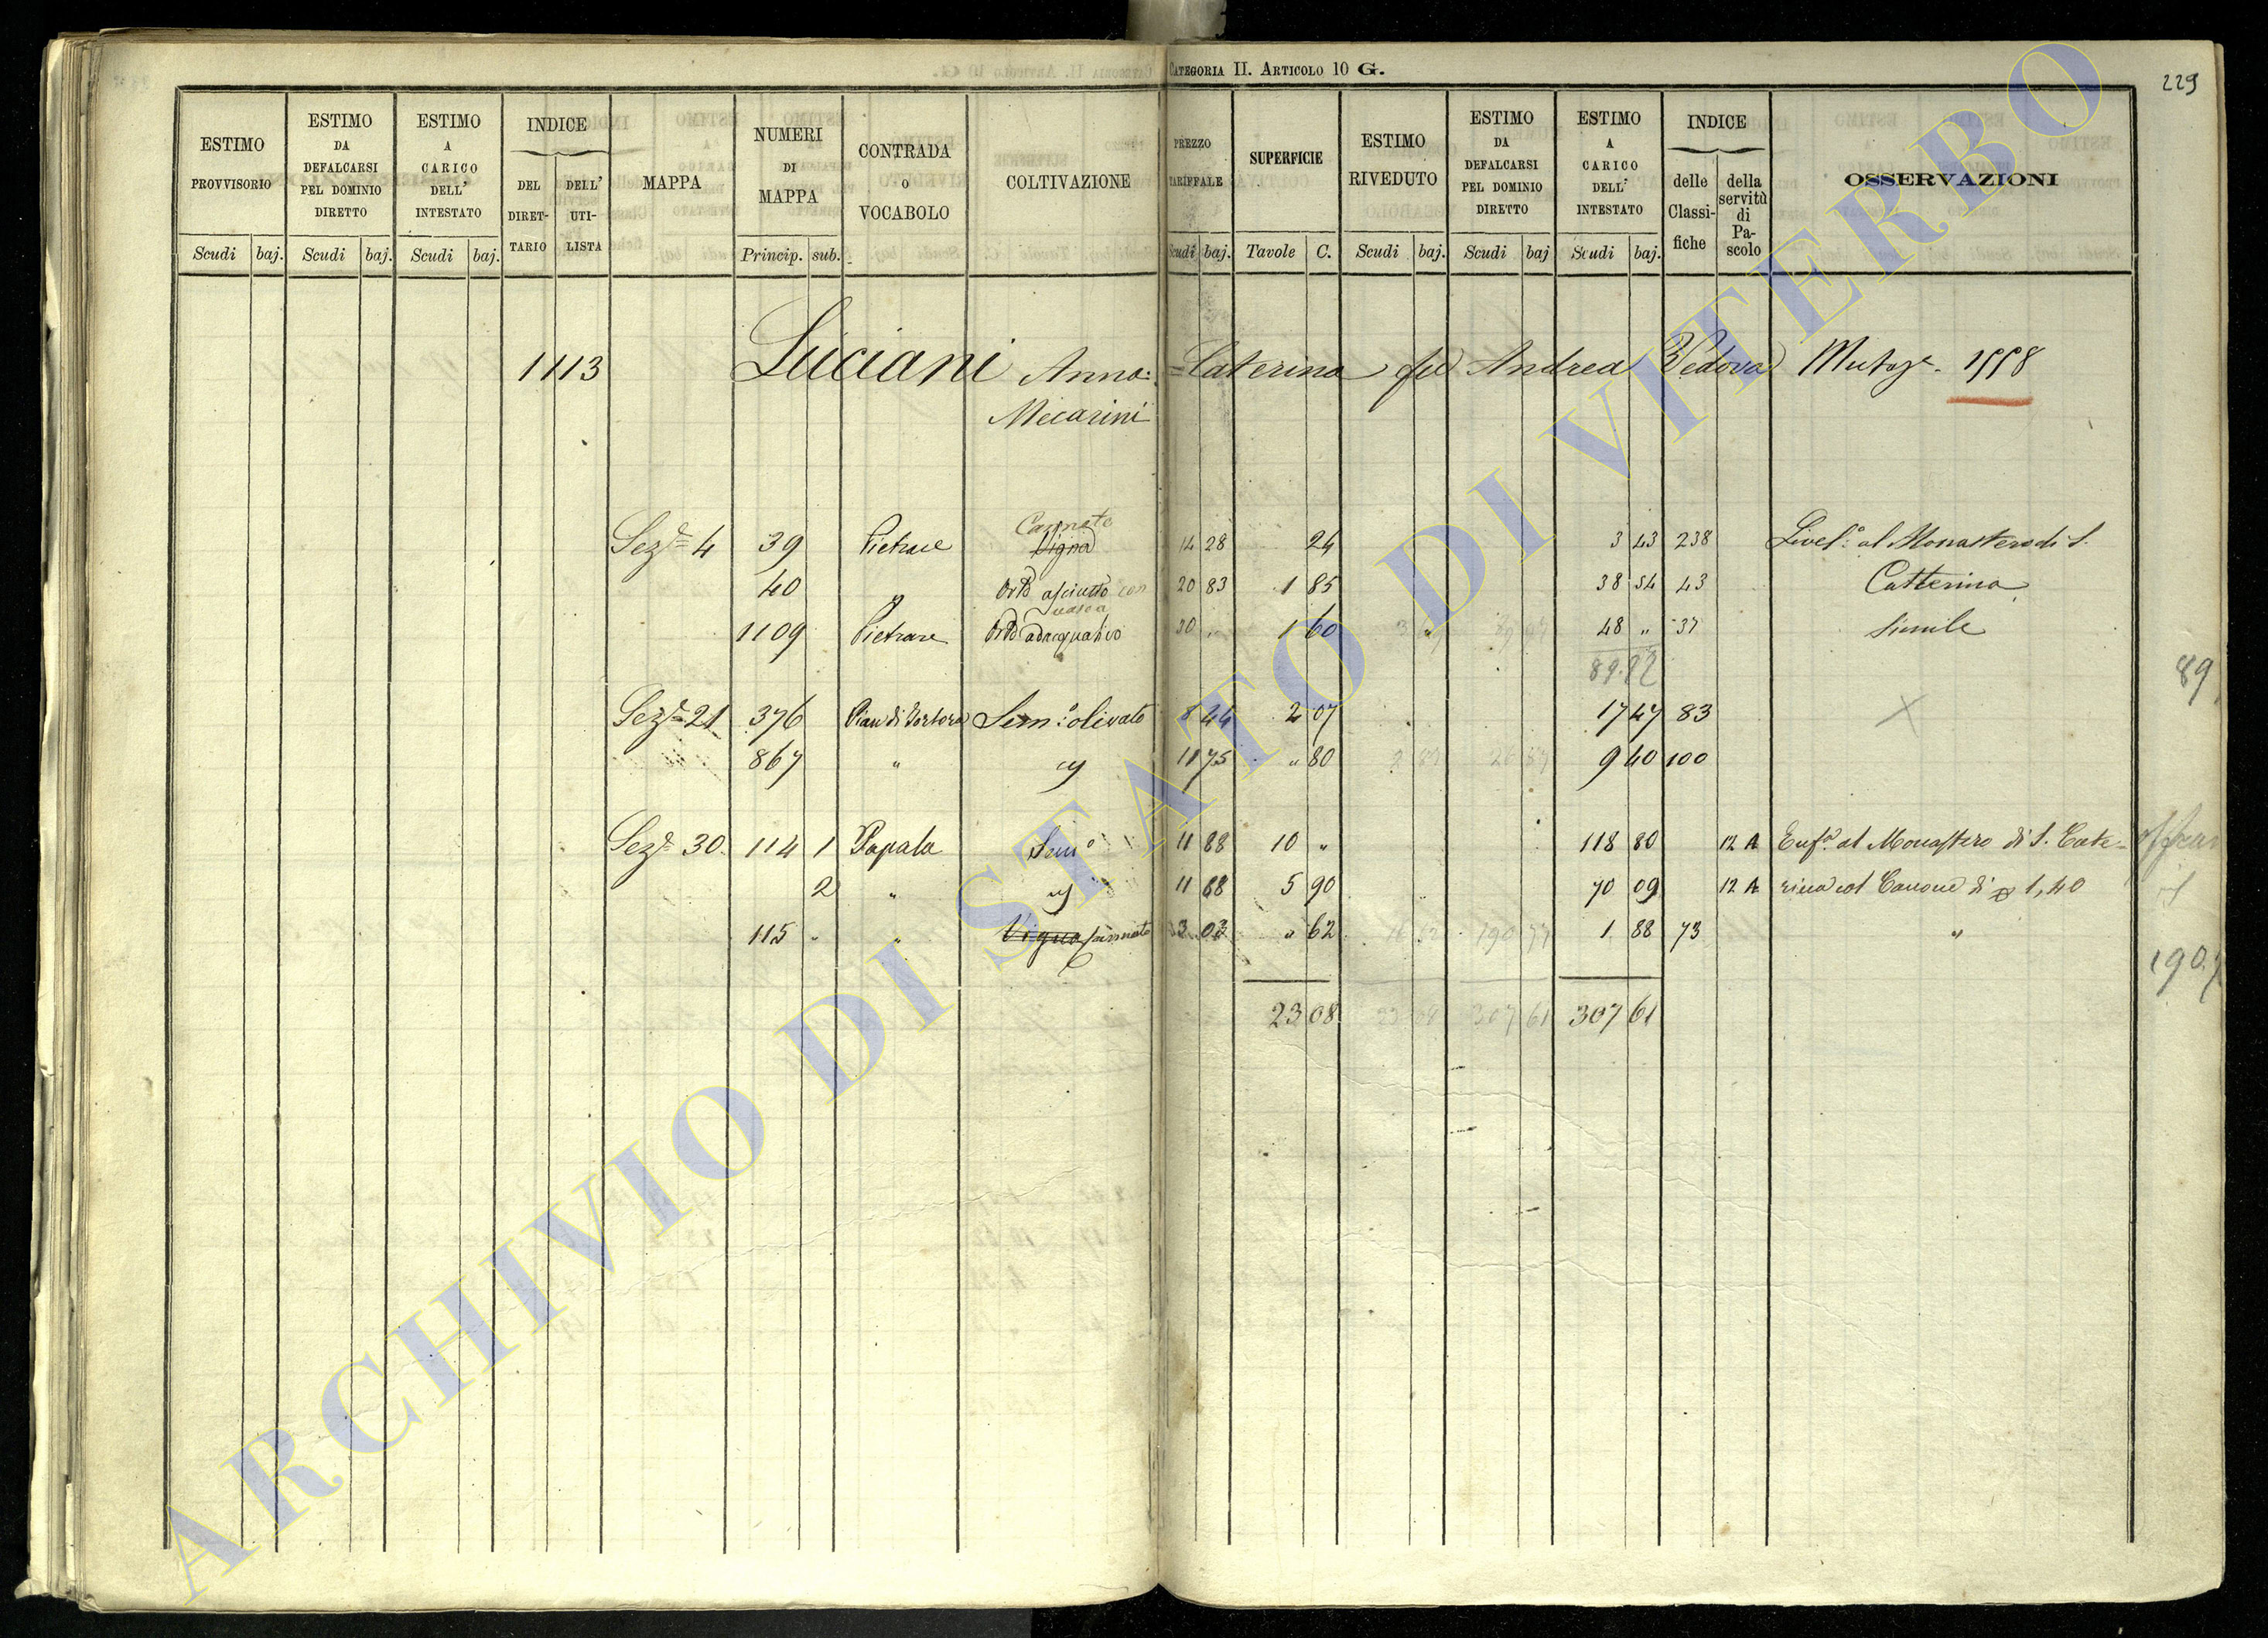 CATEGORIA II. ARTICOLO 10 G.
229
ESTIMO PROVVISORIO Scudi baj.
ESTIMO DA DEFALCARSI PEL DOMINIO DIRETTO Scudi baj.
ESTIMO A CARICO DELL' INTESTATO Scudi baj.
INDICE DEL DIRET-TARIO DELL' UTI-LISTA
MAPPA
NUMERI DI MAPPA Princip. sub.
CONTRADA O VOCABOLO
COLTIVAZIONE
PREZZO TARIFFALE Scudi baj.
SUPERFICIE Tavole C.
ESTIMO RIVEDUTO Scudi baj.
ESTIMO DA DEFALCARSI PEL DOMINIO DIRETTO Scudi baj
ESTIMO A CARICO DELL' INTESTATO Scudi baj.
INDICE delle Classi-fiche della servitù di Pa-scolo
OSSERVAZIONI
1113 Luciani Anna = Caterina fu Andrea Vedova
Mecarini
Sez.e 4 39 Pietrare Vigna Canneto 14 28 24 3 43 238 Livel.o al Monastero di S.
40 " Orto asciutto con vasca 20 83 1 85 38 54 43 Catterina
1109 Pietrare Orto adacquativo 30 .. 1 60 48 " 37 Simile
89.97
89
Sez.e 21 376 Pian di Tortora Sem.o olivato 8 44 2 07 17 47 83
867 " 11 75 " 80 9 40 100
Sez.e 30 114 1 Papala Sem.o 11 88 10 " 118 80 12 A Enf.a al Monastero di S. Cate-
2 " 11 88 5 90 70 09 12 A rina col Canone di 1,40
115 " " Vigna 3 03 " 62 1 88 73 "
190.7
23 08 23 08 307 61 307 61
ARCHIVIO DI STATO DI VITERBO